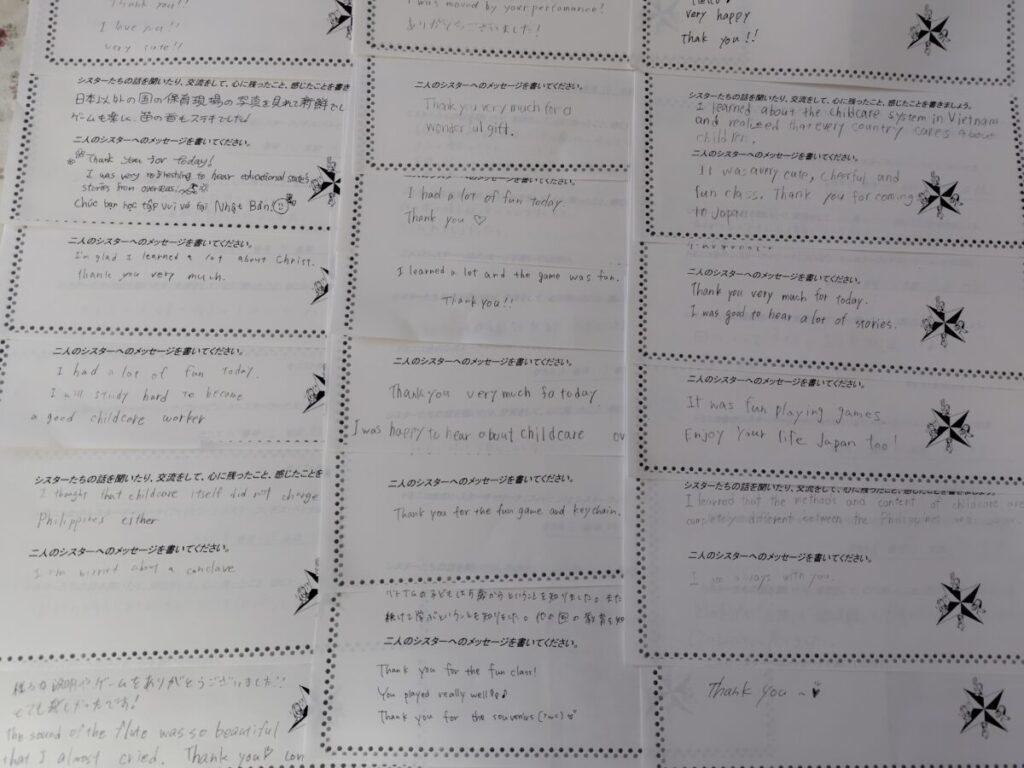 Thank you!!
I love you!!
very cute!!
シスターたちの話を聞いたり、交流をして、心に残ったこと、感じたことを書き
日本以外の国の保育現場の写真を見れて新鮮でし
ゲームも楽しく、笛の音もステキでした
二人のシスターへのメッセージを書いてください。
Thank you for today!
I was very refreshing to hear educational
stories from overseas
Chúc bạn học tập vui vẻ tại Nhật Bản!
二人のシスターへのメッセージを書いてください。
I'm glad I learned a lot about Christ.
Thank you very much.
二人のシスターへのメッセージを書いてください。
I had a lot of fun today.
I will study hard to become
a good childcare worker
シスターたちの話を聞いたり、交流をして、心に残ったこと、感じたことを
I thought that childcare itself did not change
Philippines either
二人のシスターへのメッセージを書いてください。
I'm worried about a conclave
ゲームをありがとうございました!!
とても楽しかったです!
The sound of the flute was so beautiful
that I almost cried. Thank you♡
I was moved by your performance!
ありがとうございました!
二人のシスターへのメッセージを書いてください。
Thank you very much for a
wonderful gift.
I had a lot of fun today
Thank you ♡
I learned a lot and the game was fun.
Thank you!!
二人のシスターへのメッセージを書いてください。
Thank you very much fo today
I was happy to hear about childcare ov
Thank you for the fun game and keychain.
二人のシスターへのメッセージを書いてください。
Thank you for the fun class!
You played really well
Thank you for the souvenirs
very happy
Thank you!!
シスターたちの話を聞いたり、交流をして、心に残ったこと、感じたことを書きましょう。
I learned about the childcare system in Vietnam
and realized that every country cares about
children.
二人のシスターへのメッセージを書いてください。
It was a very cute, cheerful and
fun class. Thank you for coming
to Japan
二人のシスターへのメッセージを書いてください。
Thank you very much for today.
I was good to hear a lot of stories.
二人のシスターへのメッセージを書いてください。
It was fun playing games
Enjoy your life Japan too!
シスターたちの話を聞いたり、交流をして、心に残ったこと、感じたことを書きましょう。
I learned that the methods and content of childcare are
completely different between the Philippines and Japan.
二人のシスターへのメッセージを書いてください。
I am always with you.
Thank you ~ ♥